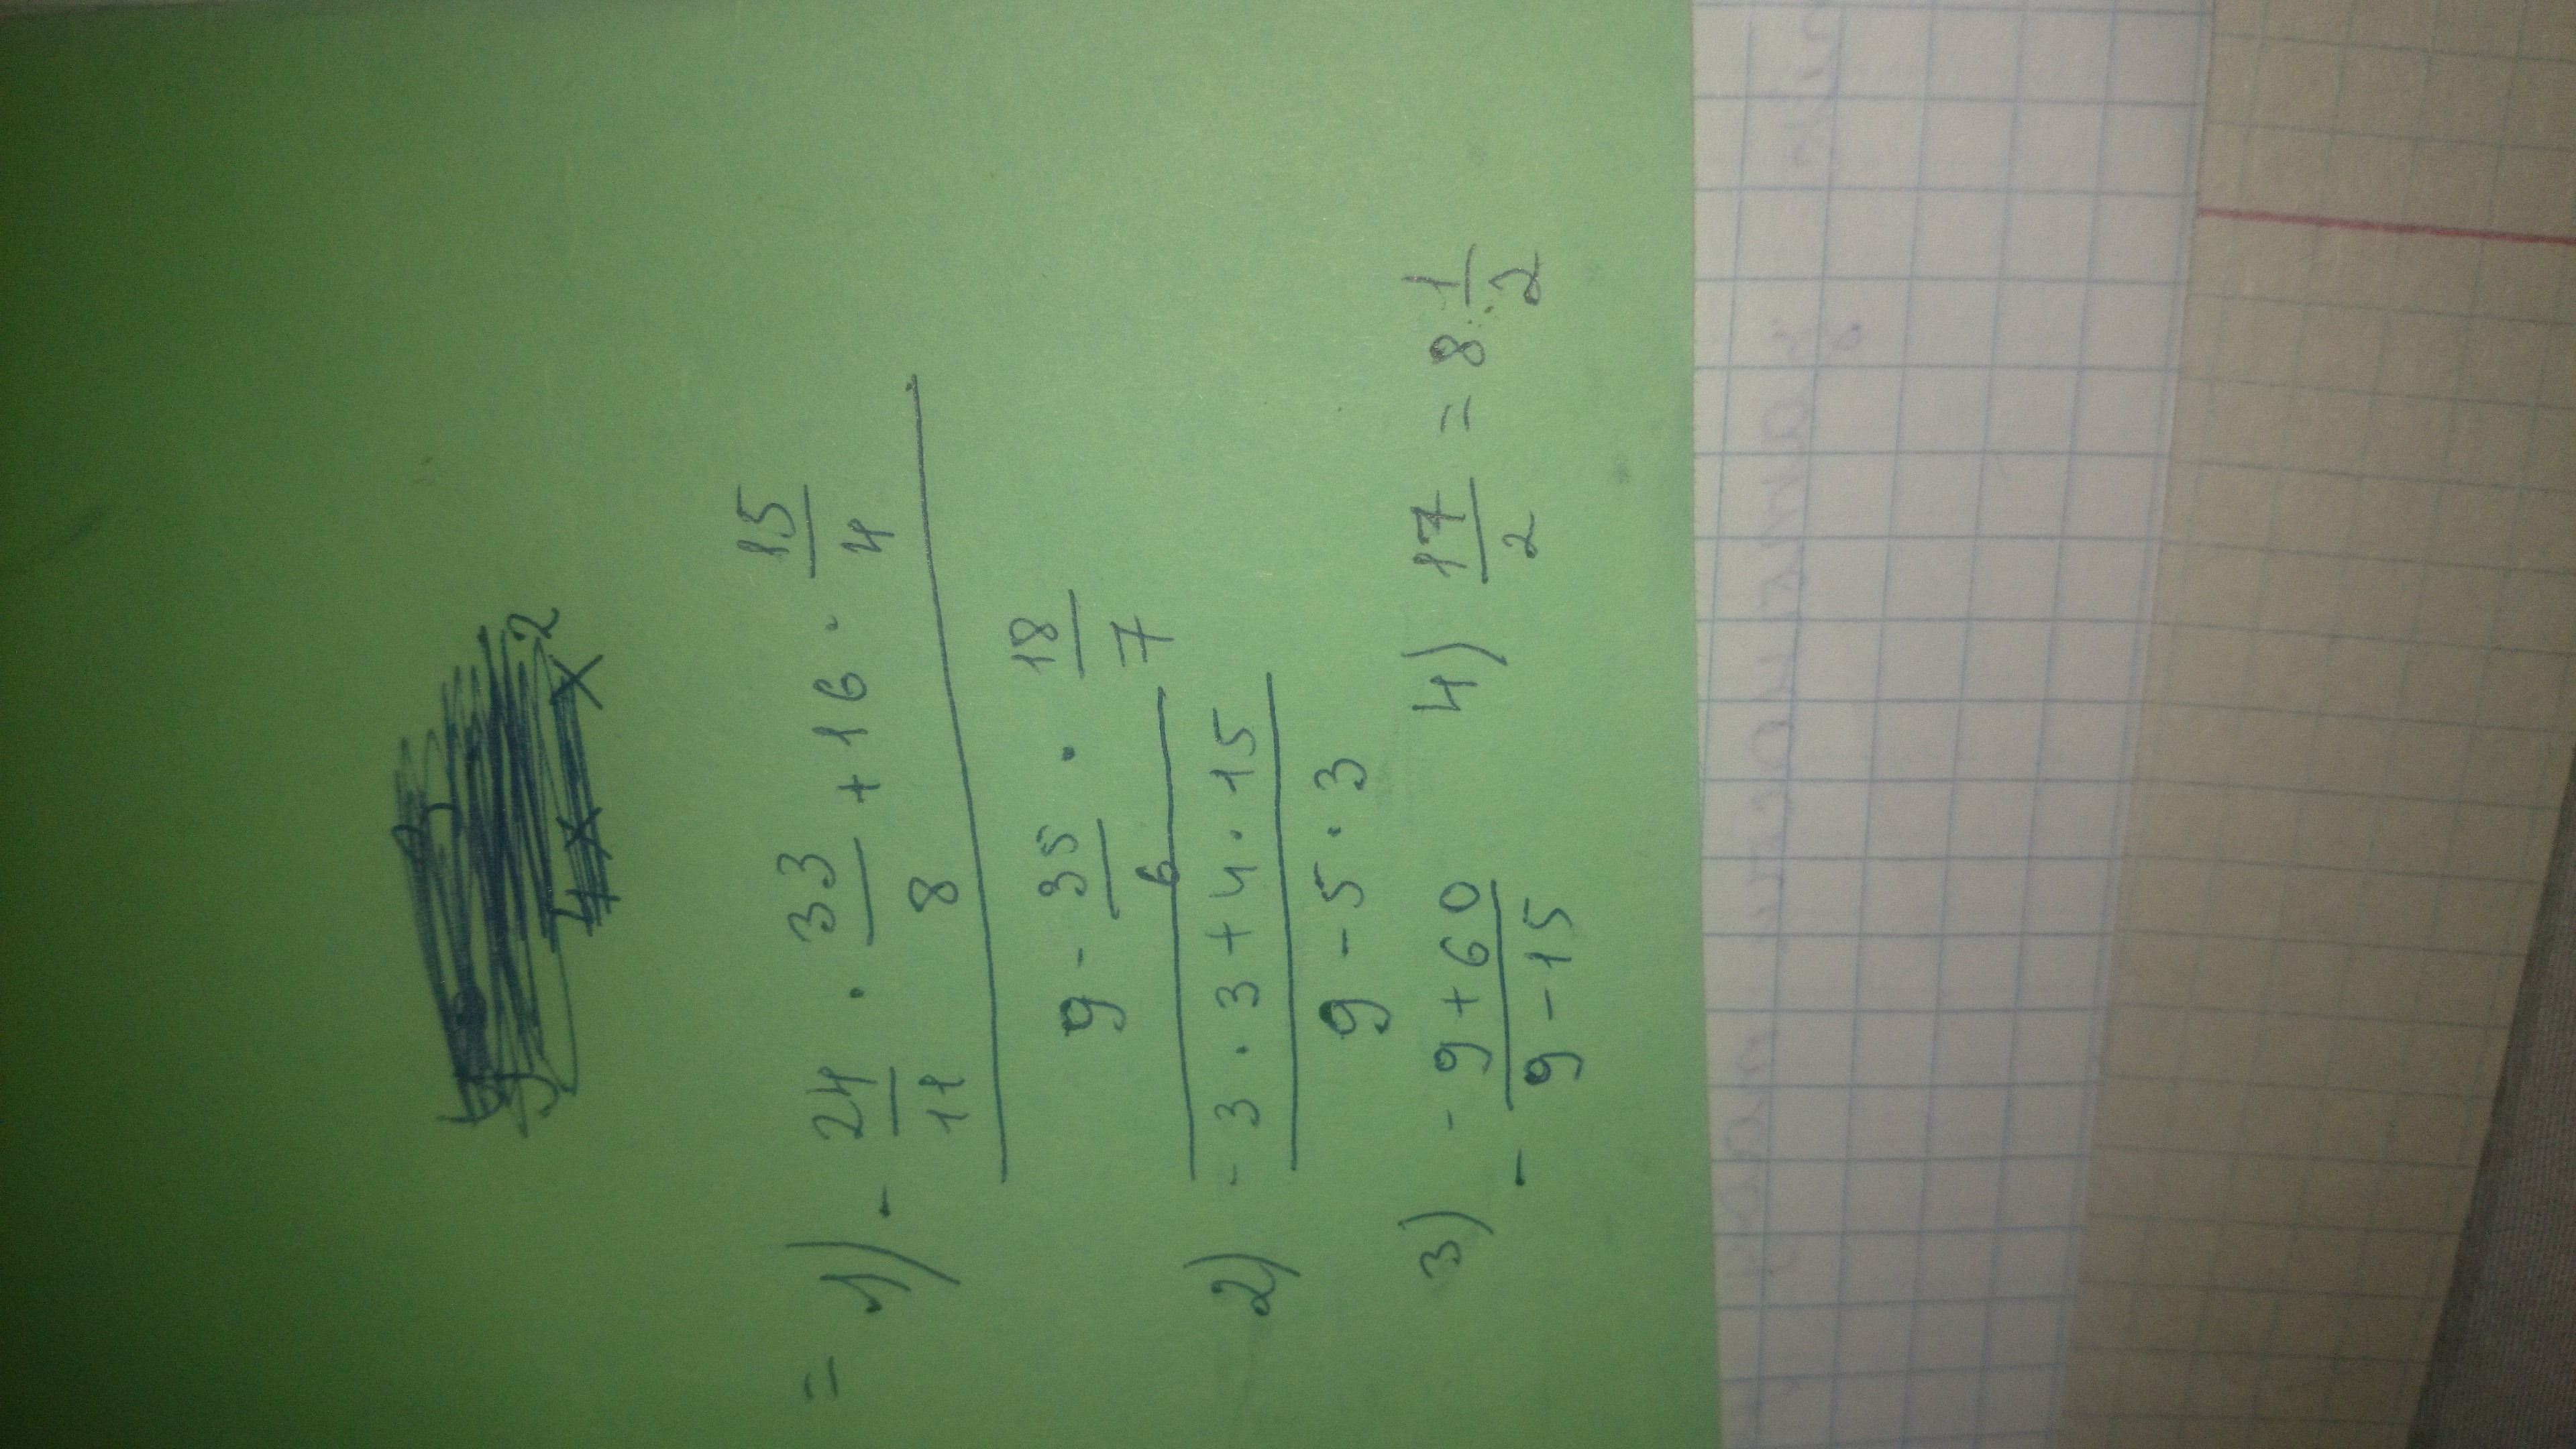 = 1) - 24/11 · 33/8 + 16 · 15/4
9 - 35/6 · 18/7
2) - 3 · 3 + 4 · 15
9 - 5 · 3
3) - - 9 + 60 4) 17/2 = 8 1/2
9 - 15